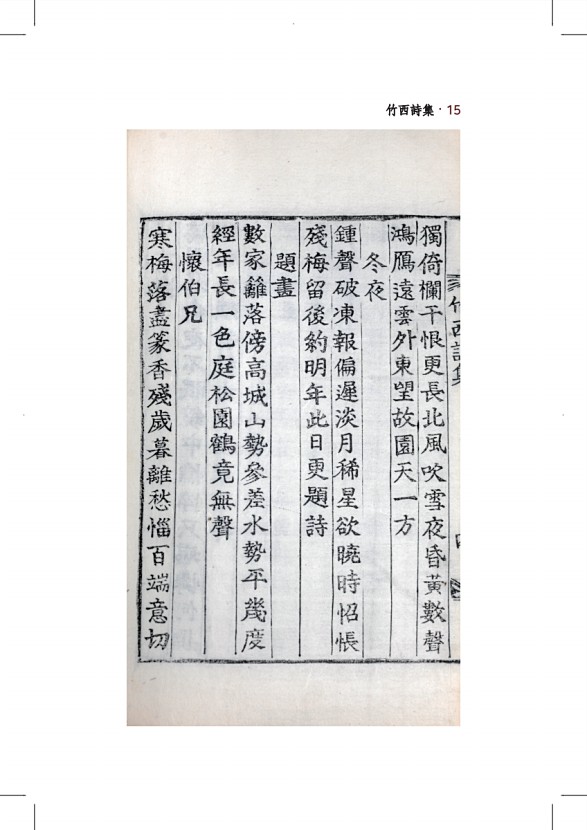 竹西詩集 · 15
竹西詩集
獨倚欄干恨更長北風吹雪夜昏黃數聲
鴻鴈遠雲外東望故園天一方
冬夜
鍾聲破凍報偏遲淡月稀星欲曉時怊悵
殘梅留後約明年此日更題詩
題畫
數家籬落傍高城山勢參差水勢平幾度
經年長一色庭松園鶴竟無聲
懷伯兄
寒梅落盡篆香殘歲暮離愁惱百端意切